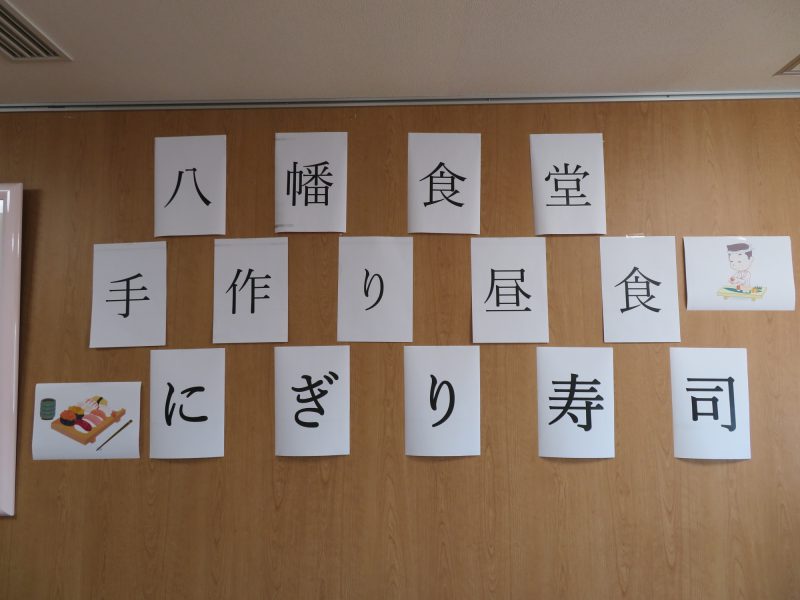 八幡食堂
手作り昼食
にぎり寿司